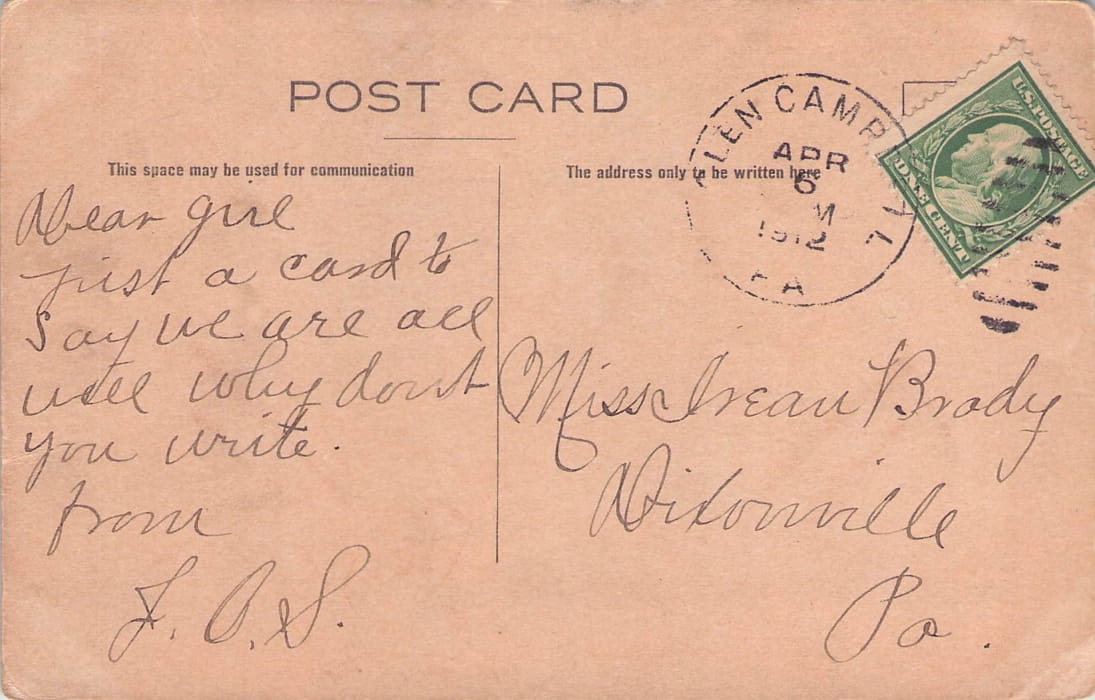 POST CARD
This space may be used for communication
The address only to be written here
GLEN CAMPBELL
APR
6
M
1912
PA
U.S. POSTAGE
ONE CENT
Dear girl
just a card to
Say we are all
well why dont
you write.
from
Miss Irean Brady
Dixonville
Pa.